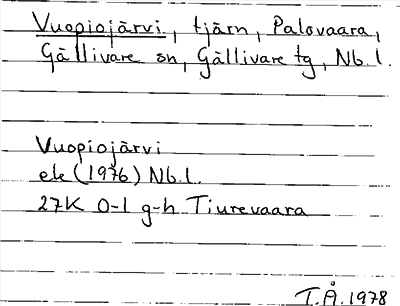 Vuopiojärvi, tjärn, Palovaara,
Gällivare sn, Gällivare tg, Nb. l.
Vuopiojärvi
ek (1976) Nb. l.
27K 0-1 g-h Tiurevaara
T.Å. 1978